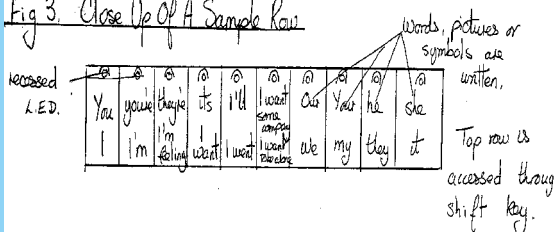 Fig 3. Close Up Of A Sample Row
words, pictures or
symbols are
written.
recessed
L.E.D.
You you're they're it's i'll I want some company Our Your he she
I I'm i'm feeling I want I went I want we my they it
Top row is
accessed through
shift key.